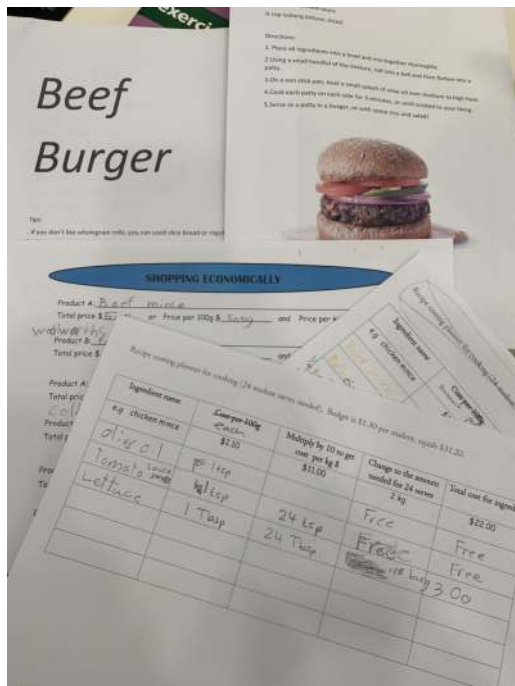 exerci
Beef
Burger
Tips:
If you don't like wholegrain rolls, you can used slice bread or regul
¼ cup iceberg lettuce, sliced
Directions:
1. Place all ingredients into a bowl and mix together thoroughly.
2 Using a small handful of the mixture, roll into a ball and then flatten into a
patty.
3.On a non stick pan, heat a small splash of olive oil over medium to high heat
4.Cook each patty on each side for 5 minutes, or until cooked to your liking
5.Serve as a patty in a burger, or with some rice and salad!
SHOPPING ECONOMICALLY
Product A: Beef mince
Total price $ or Price per 100g $ and Price per k
woolworths
Product B:
Total price $ and
Product A:
Total pric
Product
Total p
Pro
To
Recipe costing planner for cooking (24 student
Ingredient name
e.g chicken mince
Recipe costing planner for cooking (24 student serves needed). Budget is $1.30 per student, equals $31.20.
Ingredient name Cost per 100g each Multiply by 10 to get cost per kg $ Change to the amount needed for 24 serves Total cost for ingredi
e.g chicken mince $1.10 $11.00 2 kg $22.00
olive oil 1tsp Free Free
Tomato sauce 1tsp 24 tsp Free Free
Lettuce 1 Tbsp 24 Tbsp ice burg 3.00